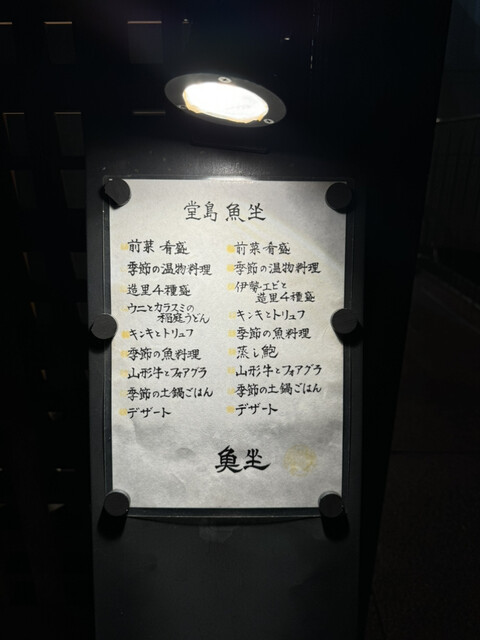 堂島 魚坐
前菜 肴盛
季節の温物料理
造里4種盛
ウニとカラスミの
稲庭うどん
キンキとトリュフ
季節の魚料理
山形牛とフォアグラ
季節の土鍋ごはん
デザート
前菜 肴盛
季節の温物料理
伊勢エビと
造里4種盛
キンキとトリュフ
季節の魚料理
蒸し鮑
山形牛とフォアグラ
季節の土鍋ごはん
デザート
魚坐